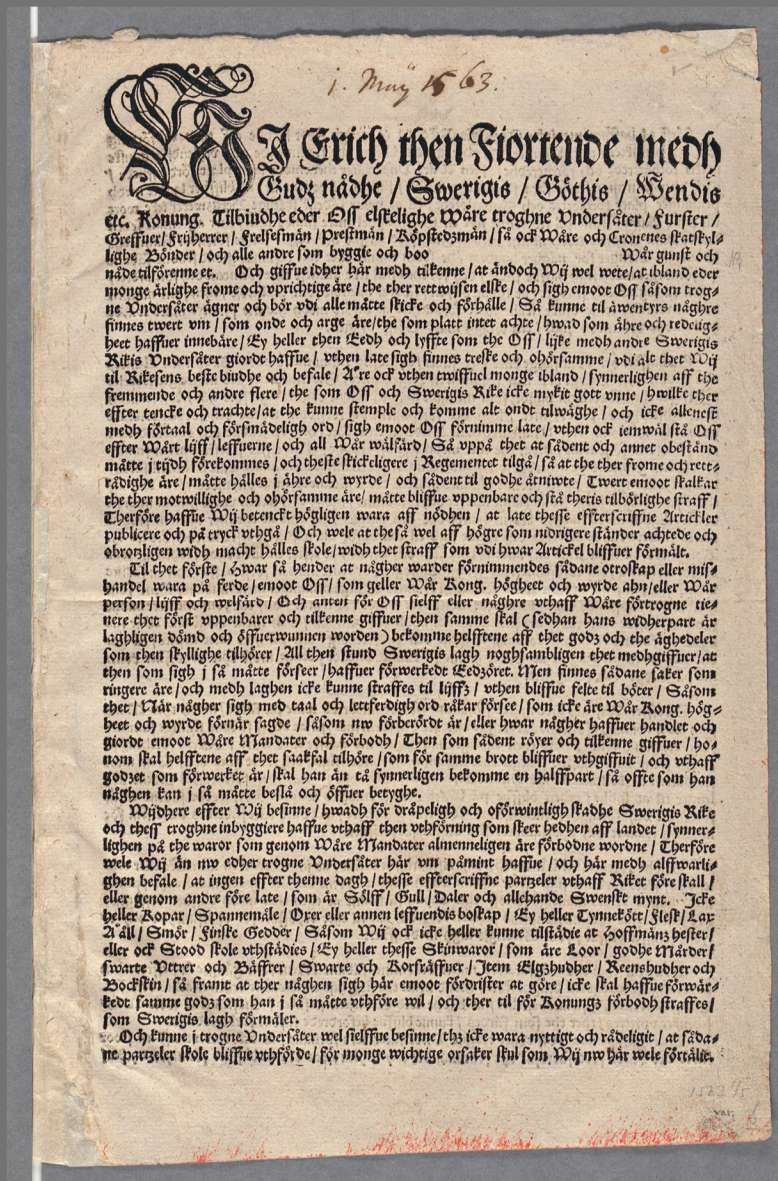 1. Maÿ 1563.
WIJ Erich then Fiortende medh
Gudz nådhe / Swerigis / Göthis / Wendis
etc. Konung. Tilbiudhe eder Oss elskelighe Wåre troghne Vndersåter / Furster /
Greffuer / Frijherrer / Frelsesmän / Prestmän / Köpstedzmän / så ock Wåre och Cronenes skatskyl-
lighe Bönder / och alle andre som byggie och boo Wår gunst och
nåde tilförenne etc. Och giffue idher här medh tilkenne / at ändoch Wij wel wete / at ibland eder
monge ärlighe frome och vprichtige äre / the ther rettwijsen elske / och sigh emoot Oss såsom trog-
ne Vndersåter ägner och bör vdi alle måtte skicke och förhålle / Så kunne til äwentyrs någhre
finnes twert vm / som onde och arge äre / the som platt intet achte / hwad som ähre och redeligh-
heet haffuer innebäre / Ey heller then Eedh och lyffte som the Oss / lijke medh andre Swerigis
Rikis Vndersåter giordt haffue / vthen late sigh finnes treske och ohörsamme / vdi alt thet Wij
til Rikesens beste biudhe och befale / Äre ock vthen twiffuel monge ibland / synnerlighen aff the
fremmende och andre flere / the som Oss och Swerigis Rike icke mykit gott vnne / hwilke ther
effter tencke och trachte / at the kunne stemple och komme alt ondt tilwäghe / och icke allenest
medh förtaal och försmädeligh ord / sigh emoot Oss förnimme late / vthen ock iemwäl stå Oss
effter Wårt lijff / leffuerne / och all Wår wälfärd / Så vppå thet at sådent och annet obestånd
måtte j tijdh förekommes / och theste skickeligere j Regementet tilgå / så at the ther frome och rett-
rådighe äre / måtte hålles j ähre och wyrde / och sådent til godhe åtniwte / Twert emoot skalkar
the ther motwillighe och ohörsamme äre / måtte bliffue vppenbare och stå theris tilbörlighe straff /
Therföre haffue Wij betenckt högligen wara aff nödhen / at late thesse effterscriffne Artickler
publicere och på tryck vthgå / Och wele at the så wel aff högre som nidrigere ständer achtede och
obrotzligen widh macht hålles skole / widh thet straff som vdi hwar Artickel bliffuer förmält.
Til thet förste / Hwar så hender at någher warder förnimmendes sådane otroskap eller mis-
handel wara på ferde / emoot Oss / som geller Wår Kong. högheet och wyrde ahn / eller Wår
person / lijff och welfärd / Och anten för Oss sielff eller någhre vthaff Wåre förtrogne tie-
nere thet först vppenbarer och tilkenne giffuer / then samme skal (sedhan hans widherpart är
laghligen dömd och öffuerwunnen worden) bekomme helfftene aff thet godz och the äghedeler
som then skyllighe tilhörer / All then stund Swerigis lagh noghsambligen thet medhgiffuer / at
then som sigh j så måtte förseer / haffuer förwerkedt Eedzöret. Men finnes sådane saker som
ringere äre / och medh laghen icke kunne straffes til lijffz / vthen bliffue felte til böter / Såsom
thet / När någher sigh med taal och lettferdigh ord råkar försee / som icke äre Wår Kong. hög-
heet och wyrde förnär sagde / såsom nw förberördt är / eller hwar någher haffuer handlet och
giordt emoot Wåre Mandater och förbodh / Then som sådent röyer och tilkenne giffuer / ho-
nom skal helfftene aff thet saakfal tilhöre / som för samme brott bliffuer vthgiffuit / och vthaff
godzet som förwerket är / skal han än tå synnerligen bekomme en halffpart / så offte som han
någhen kan j så måtte beslå och öffuer betyghe.
Wijdhere effter Wij besinne / hwadh för dräpeligh och oförwintligh skadhe Swerigis Rike
och thess troghne inbyggiere haffue vthaff then vthförning som skeer hedhen aff landet / synner-
lighen på the waror som genom Wåre Mandater almenneligen äre förbodne wordne / Therföre
wele Wij än nw edher trogne Vndersåter här vm påmint haffue / och här medh alffwarli-
ghen befale / at ingen effter thenne dagh / thesse effterscriffne partzeler vthaff Riket före skall /
eller genom andre före late / som är Sölff / Gull / Daler och allehande Swenskt mynt. Icke
heller Kopar / Spannemåle / Oxer eller annen leffuendis boskap / Ey heller Tynnekött / Flesk / Lax
Aåll / Smör / Finske Gedder / Såsom Wij ock icke heller kunne tilstädie at Hoffmänz hester /
eller ock Stood skole vthstädies / Ey heller thesse Skinwaror / som äre Loor / godhe Mårder /
swarte Vttrer och Bäffrer / Swarte och Korsräffuer / Item Elgzhudher / Reenshudher och
Bockskin / så framt at ther någhen sigh här emoot fördrister at göre / icke skal haffue förwär-
kedt samme godz som han j så måtte vthföre wil / och ther til för Konungz förbodh straffes /
som Swerigis lagh förmäler.
Och kunne j trogne Vndersåter wel sielffue besinne / thz icke wara nyttigt och rådeligit / at såda-
ne partzeler skole bliffue vthförde / för monge wichtige orsaker skul som Wij nw här wele förtälie.
1563 1/5
var.